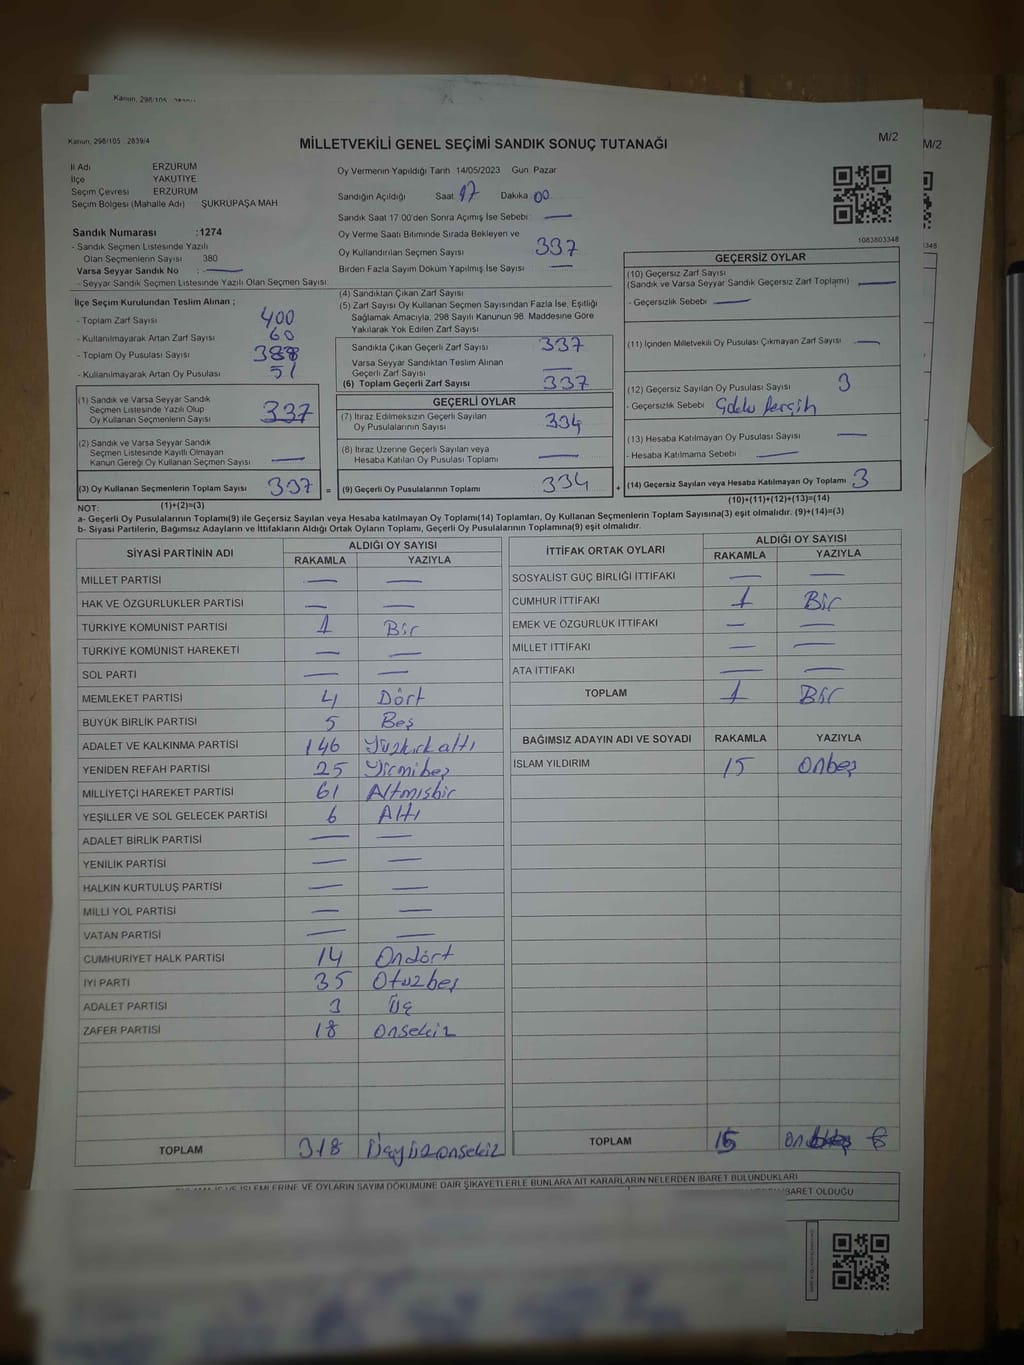 Kanun, 298/105
M/2
Kanun, 298/105 2839/4
MİLLETVEKİLİ GENEL SEÇİMİ SANDIK SONUÇ TUTANAĞI
M/2
İl Adı ERZURUM
İlçe YAKUTİYE
Seçim Çevresi ERZURUM
Seçim Bölgesi (Mahalle Adı) ŞÜKRÜPAŞA MAH
Sandık Numarası :1274
- Sandık Seçmen Listesinde Yazılı
Olan Seçmenlerin Sayısı 380
Varsa Seyyar Sandık No : —
- Seyyar Sandık Seçmen Listesinde Yazılı Olan Seçmen Sayısı:
Oy Vermenin Yapıldığı Tarih :14/05/2023 Gün Pazar
Sandığın Açıldığı Saat 17 Dakika 00
Sandık Saat 17 00'den Sonra Açımış İse Sebebi: —
Oy Verme Saati Bitiminde Sırada Bekleyen ve
Oy Kullandırılan Seçmen Sayısı 337
Birden Fazla Sayım Döküm Yapılmış İse Sayısı —
1083803348
İlçe Seçim Kurulundan Teslim Alınan ;
- Toplam Zarf Sayısı 400
- Kullanılmayarak Artan Zarf Sayısı 60
- Toplam Oy Pusulası Sayısı 388
- Kullanılmayarak Artan Oy Pusulası 51
(1) Sandık ve Varsa Seyyar Sandık
Seçmen Listesinde Yazılı Olup
Oy Kullanan Seçmenlerin Sayısı 337
(2) Sandık ve Varsa Seyyar Sandık
Seçmen Listesinde Kayıtlı Olmayan
Kanun Gereği Oy Kullanan Seçmen Sayısı —
(3) Oy Kullanan Seçmenlerin Toplam Sayısı 337
(4) Sandıktan Çıkan Zarf Sayısı
(5) Zarf Sayısı Oy Kullanan Seçmen Sayısından Fazla İse, Eşitliği
Sağlamak Amacıyla, 298 Sayılı Kanunun 98. Maddesine Göre
Yakılarak Yok Edilen Zarf Sayısı
Sandıkta Çıkan Geçerli Zarf Sayısı 337
Varsa Seyyar Sandıktan Teslim Alınan
Geçerli Zarf Sayısı —
(6) Toplam Geçerli Zarf Sayısı 337
GEÇERLİ OYLAR
(7) İtiraz Edilmeksizin Geçerli Sayılan
Oy Pusulalarının Sayısı 334
(8) İtiraz Üzerine Geçerli Sayılan veya
Hesaba Katılan Oy Pusulası Toplamı —
= (9) Geçerli Oy Pusulalarının Toplamı 334
GEÇERSİZ OYLAR
(10) Geçersiz Zarf Sayısı
(Sandık ve Varsa Seyyar Sandık Geçersiz Zarf Toplamı) —
- Geçersizlik Sebebi —
(11) İçinden Milletvekili Oy Pusulası Çıkmayan Zarf Sayısı —
(12) Geçersiz Sayılan Oy Pusulası Sayısı 3
- Geçersizlik Sebebi
(13) Hesaba Katılmayan Oy Pusulası Sayısı —
- Hesaba Katılmama Sebebi —
+ (14) Geçersiz Sayılan veya Hesaba Katılmayan Oy Toplamı 3
NOT: (1)+(2)=(3)
(10)+(11)+(12)+(13)=(14)
a- Geçerli Oy Pusulalarının Toplamı(9) ile Geçersiz Sayılan veya Hesaba katılmayan Oy Toplamı(14) Toplamları, Oy Kullanan Seçmenlerin Toplam Sayısına(3) eşit olmalıdır. (9)+(14)=(3)
b- Siyasi Partilerin, Bağımsız Adayların ve İttifakların Aldığı Ortak Oyların Toplamı, Geçerli Oy Pusulalarının Toplamına(9) eşit olmalıdır.
SİYASİ PARTİNİN ADI ALDIĞI OY SAYISI
RAKAMLA YAZIYLA
MİLLET PARTİSİ — —
HAK VE ÖZGÜRLÜKLER PARTİSİ — —
TÜRKİYE KOMÜNİST PARTİSİ 1 Bir
TÜRKİYE KOMÜNİST HAREKETİ — —
SOL PARTİ — —
MEMLEKET PARTİSİ 4 Dört
BÜYÜK BİRLİK PARTİSİ 5 Beş
ADALET VE KALKINMA PARTİSİ 146 Yüzkırkaltı
YENİDEN REFAH PARTİSİ 25 Yirmibeş
MİLLİYETÇİ HAREKET PARTİSİ 61 Altmışbir
YEŞİLLER VE SOL GELECEK PARTİSİ 6 Altı
ADALET BİRLİK PARTİSİ — —
YENİLİK PARTİSİ — —
HALKIN KURTULUŞ PARTİSİ — —
MİLLİ YOL PARTİSİ — —
VATAN PARTİSİ — —
CUMHURİYET HALK PARTİSİ 14 Ondört
İYİ PARTİ 35 Otuzbeş
ADALET PARTİSİ 3 Üç
ZAFER PARTİSİ 18 Onsekiz
TOPLAM 318 Üçyüzonsekiz
İTTİFAK ORTAK OYLARI ALDIĞI OY SAYISI
RAKAMLA YAZIYLA
SOSYALİST GÜÇ BİRLİĞİ İTTİFAKI — —
CUMHUR İTTİFAKI 1 Bir
EMEK VE ÖZGÜRLÜK İTTİFAKI — —
MİLLET İTTİFAKI — —
ATA İTTİFAKI — —
TOPLAM 1 Bir
BAĞIMSIZ ADAYIN ADI VE SOYADI RAKAMLA YAZIYLA
İSLAM YILDIRIM 15 Onbeş
TOPLAM 15
İŞLEMLERİNE VE OYLARIN SAYIM DÖKÜMÜNE DAİR ŞİKAYETLERLE BUNLARA AİT KARARLARIN NELERDEN İBARET BULUNDUKLARI
İBARET OLDUĞU